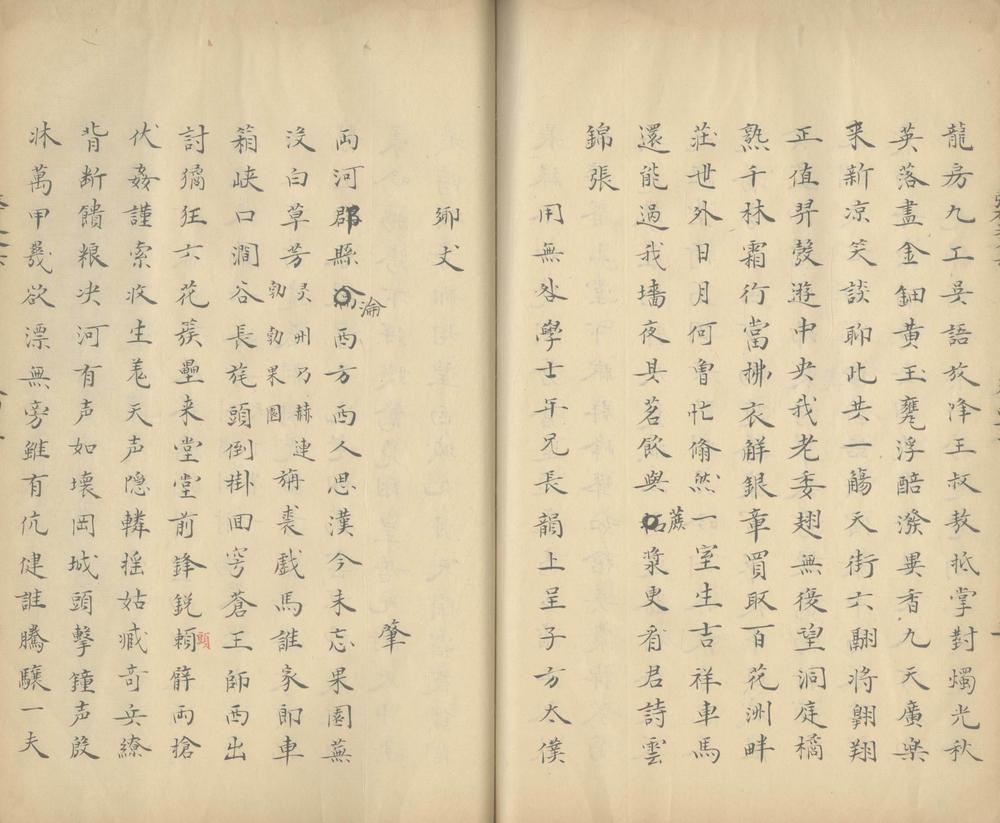 龍房九工吳語放浄王叔教抵掌對燭光秋
英落盡金鈿黄玉甕浮醅潑異香九天廣樂
来新凉笑談聊此共一觴天街六翮將翺翔
正值羿彀遊中央我老委翅無復望洞庭橘
熟千林霜行當拂衣解銀章買取百花洲畔
莊世外日月何曾忙翛然一室生吉祥車馬
還能過我墻夜具茗飲與蔗漿更看君詩雲
錦張
用無咎學士年兄長韻上呈子方太僕
卿丈
肇
両河郡縣淪西方西人思漢今未忘果園蕪
没白草芳
灵州乃赫連
勃勃果園
旃裘戯馬誰家郎車
箱峽口澗谷長旄頭倒掛回穹蒼王師西出
討獝狂六花簇壘来堂堂前鋒鋭頭臂両槍
伏姦謹索收生羌天声隠轔揺姑臧奇兵繚
背断饋粮决河有声如壊岡城頭擊鐘声殷
牀萬甲㡬欲漂無旁雖有伉健誰騰驤一夫